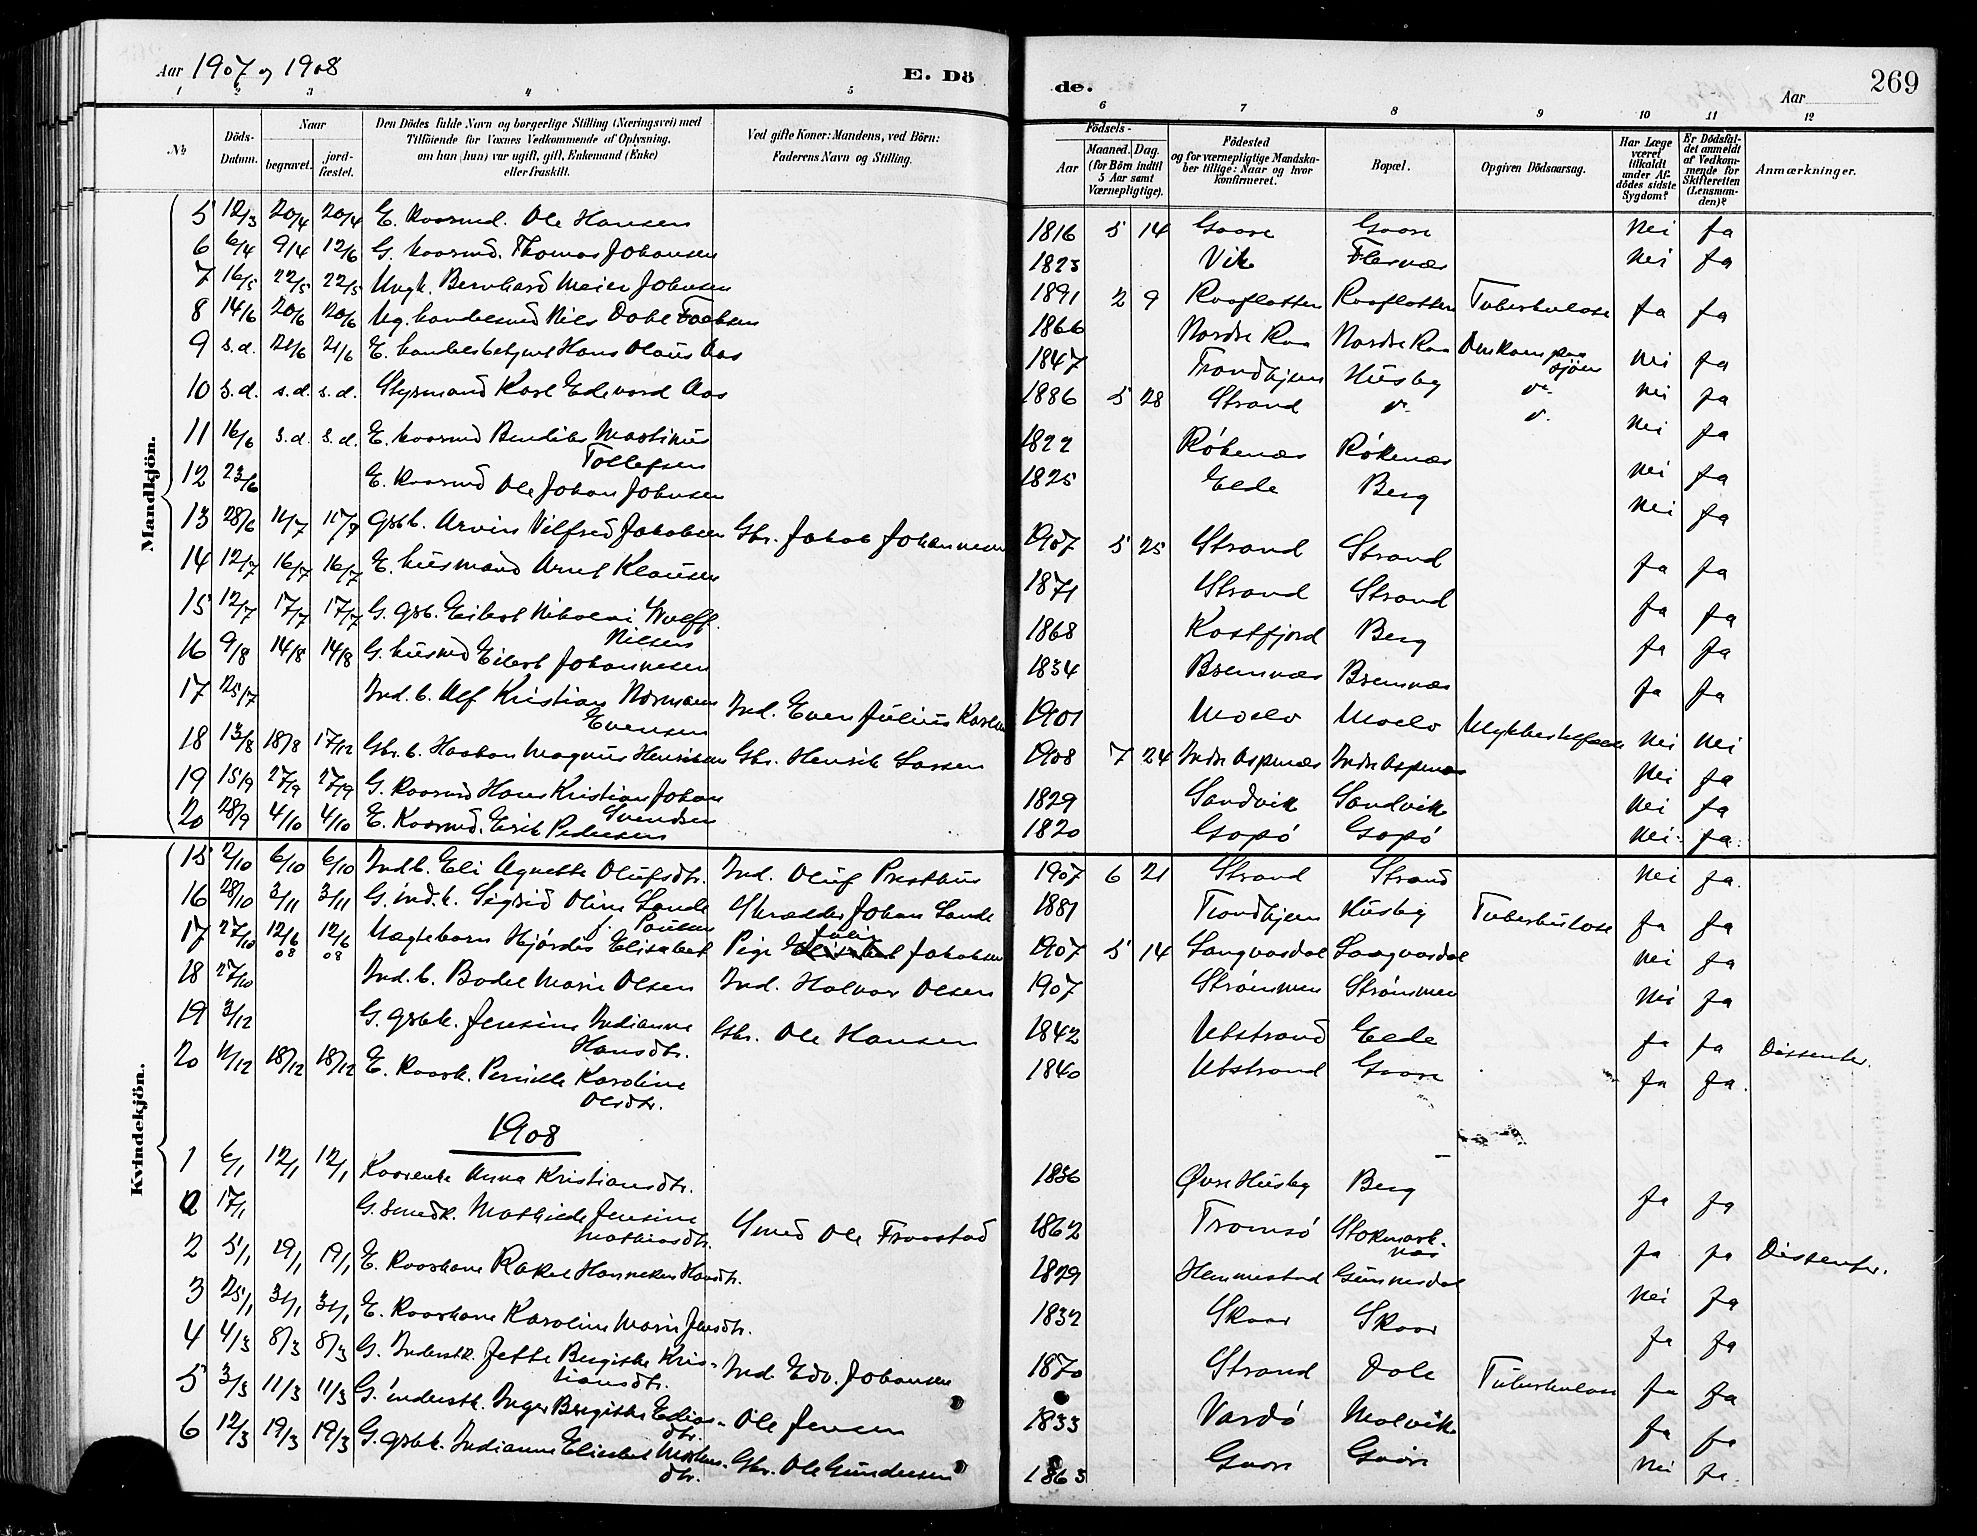 Aar 1907 og 1908
E. Dö
de.
269
Aar
1 2 3 4 5 6 7 8 9 10 11 12
No
Döds-Datum.
Naar
begravet.
jord-fæstet.
Den Dödes fulde Navn og borgerlige Stilling (Næringsvei) med
Tilföiende for Voxnes Vedkommende af Oplysning,
om han (hun) var ugift, gift, Enkemand (Enke)
eller fraskilt.
Ved gifte Koner: Mandens, ved Börn:
Faderens Navn og Stilling.
Födsels-
Aar
Maaned. Dag.
(for Börn indtil
5 Aar samt
Værnepligtige).
Födested
og for værnepligtige Mandska-
ber tillige: Naar og hvor
konfirmeret.
Bopæl.
Opgiven Dödsaarsag.
Har Læge
været
tilkaldt
under Af-
dödes sidste
Sygdom?
Er Dödsfal-
det anmeldt
af Vedkom-
mende for
Skifteretten
(Lensman-
den)?
Anmærkninger.
Mandkjön.
5 12/3 20/4 20/4 E. Kaarmd. Ole Hansen 1816 5 14 Gaare Gaare Nei Ja
6 6/4 9/4 12/6 G. kaarmd. Thomas Johansen 1823 Vik Flesnæs Nei Ja
7 16/5 22/5 22/5 Ungk. Bernhard Meier Johnsen 1891 2 9 Raaflotten Raaflotten Tuberkulose Ja Ja
8 14/6 20/6 20/6 Ug. handelsmd Nils Dahl 1866 Nordre Raa Nordre Raa Omkom paa sjøen Nei Ja
9 s.d. 21/6 21/6 E. handelsbetjent Hans Olaus Aas 1847 Trondhjem Husby Nei Ja
10 s.d. s.d. s.d. Styrmand Karl Edevard Aas 1886 5 28 Strand Nei Ja
11 16/6 s.d. s.d. E. kaarmd Bendiks Martinus
Tollefsen 1822 Røkenæs Røkenæs Nei Ja
12 23/6 E. Kaarmd Ole Johan Johnsen 1825 Elde Berg Nei Ja
13 28/6 11/7 17/7 gsbb. Arvin Vilfred Jakobsen Gbr. Jakob Johannesen 1907 5 25 Strand Strand Ja Ja
14 12/7 16/7 16/7 E. husmand Arnt Klausen 1871 Strand Strand Ja Ja
15 12/7 17/7 17/7 G. gsb. Eilert Nikolai Wulff
Nilsen 1868 Kastfjord Berg Ja Ja
16 9/8 14/8 14/8 G. husmd Eilert Johannesen 1834 Bremnæs Bremnæs Ja Ja
17 25/7 Ind. b. Alf Kristian Normann
Evensen Ind. Even Julius 1901 Moelv Moelv Nei Nei
18 13/8 18/8 17/12 Gbr. b. Haakon Magnus Henriksen Gbr. Henrik Larsen 1908 7 24 Indre Aspenæs Indre Aspenæs Nei Ja
19 15/9 27/9 27/9 G. Kaarmd Hans Kristian Johan
Svendsen 1829 Sandvik Sandvik Nei Ja
20 28/9 4/10 4/10 E. Kaarmd. Erik Pedersen 1820 Gapø Gapø Nei Ja.
Kvindekjön.
15 2/10 6/10 6/10 Ind. b. Eli Agnethe Olufsdtr. Ind. Oluf Presthus 1907 6 21 Strand Strand Nei Ja.
16 28/10 3/11 3/11 G. ind. k. Sigrid Oline Sande
f. Paulsen Skrædder Johan Sande 1881 Trondhjem Husby Tuberkulose Ja Ja
17 27/10 12/6 08 12/6 08 Uægtebarn Hjørdis Elisabet Pige Julie Jakobsen 1907 5 14 Langvasdal Langvasdal Nei Ja
18 27/10 Ind. b. Bodel Marie Olsen Ind. Halvor Olsen 1907 Strømmen Strømmen Nei Ja
19 3/12 G. gsbk. Jensine Indianna
Hansdtr. Gbr. Ole Hansen 1842 Utstrand Elde Ja Ja Dissenter.
20 11/12 18/12 18/12 E. Kaark. Pernille Karoline
Olsdtr. 1840 Utstrand Gaare Ja Ja.
1908
1 6/1 12/1 12/1 Kaarenke Anna Kristiansdtr. 1836 Øvre Husby Berg Ja Ja
a 17/1 G. Smedk. Mathilde Jensine
Mathiasdtr. Smed Ole Fraastad 1862 Tromsø Stokmark-
næs Ja Ja Dissenter.
2 5/1 19/1 19/1 E. Kaarkone Rakel Hanneken Hansdtr. 1829 Hemmestad Gunnesdal Nei Ja
3 25/1 31/1 31/1 E. Kaarkone Karoline Marie Jensdtr. 1832 Skaar Skaar Ja Ja
4 4/3 8/3 8/3 G. Inderstk. Jette Bergithe Kris-
tiansdtr. Ind Edv. Johansen 1870 Strand Dale Tuberkulose Ja Ja
5 3/3 11/3 11/3 G. inderstk. Inger Bergithe Elias-
dtr. Ole Jensen 1833 Vardø Molvik Ja Ja
6 12/3 19/3 19/3 G. gsbk. Indianna Elisabet Mortens-
dtr. Gbr. Ole Gundersen 1863 Gaare Gaare Nei Ja.